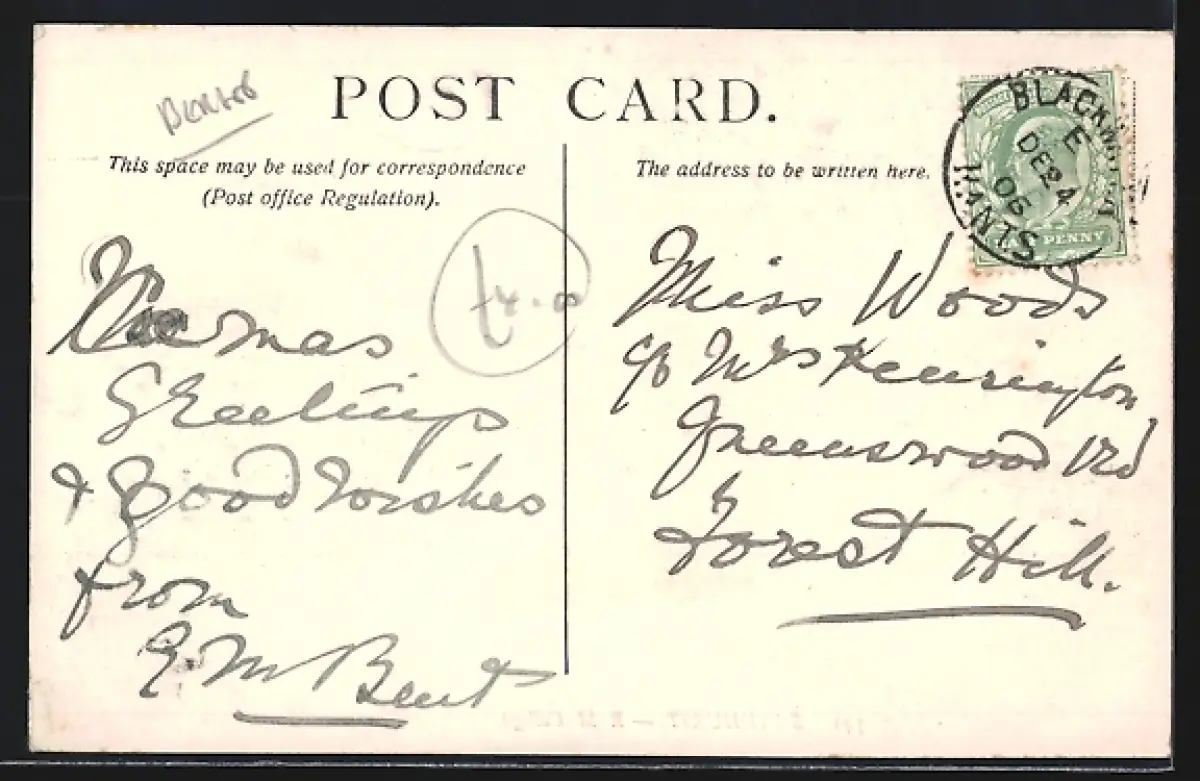 POST CARD.
This space may be used for correspondence
(Post office Regulation).
The address to be written here.
BLACKWATER
E
DE 24
06
HANTS
HALF PENNY
Berks
£4.00
Xmas
Greetings
& Good Wishes
from
E. M Bent
Miss Woods
c/o Mrs Kensington
Greenswood Rd
Forest Hill.